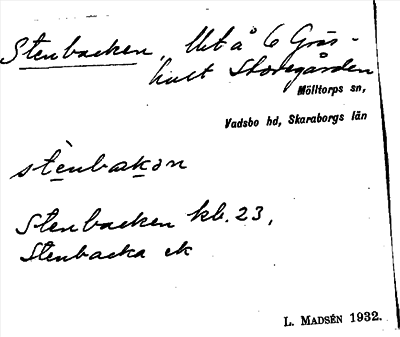 Stenbacken, Ut å 6 Gräs-
hult Storegården
Mölltorps sn,
Vadsbo hd, Skaraborgs län
stènbakən
Stenbacken kb. 23,
Stenbacka ek
L. MADSÉN 1932.